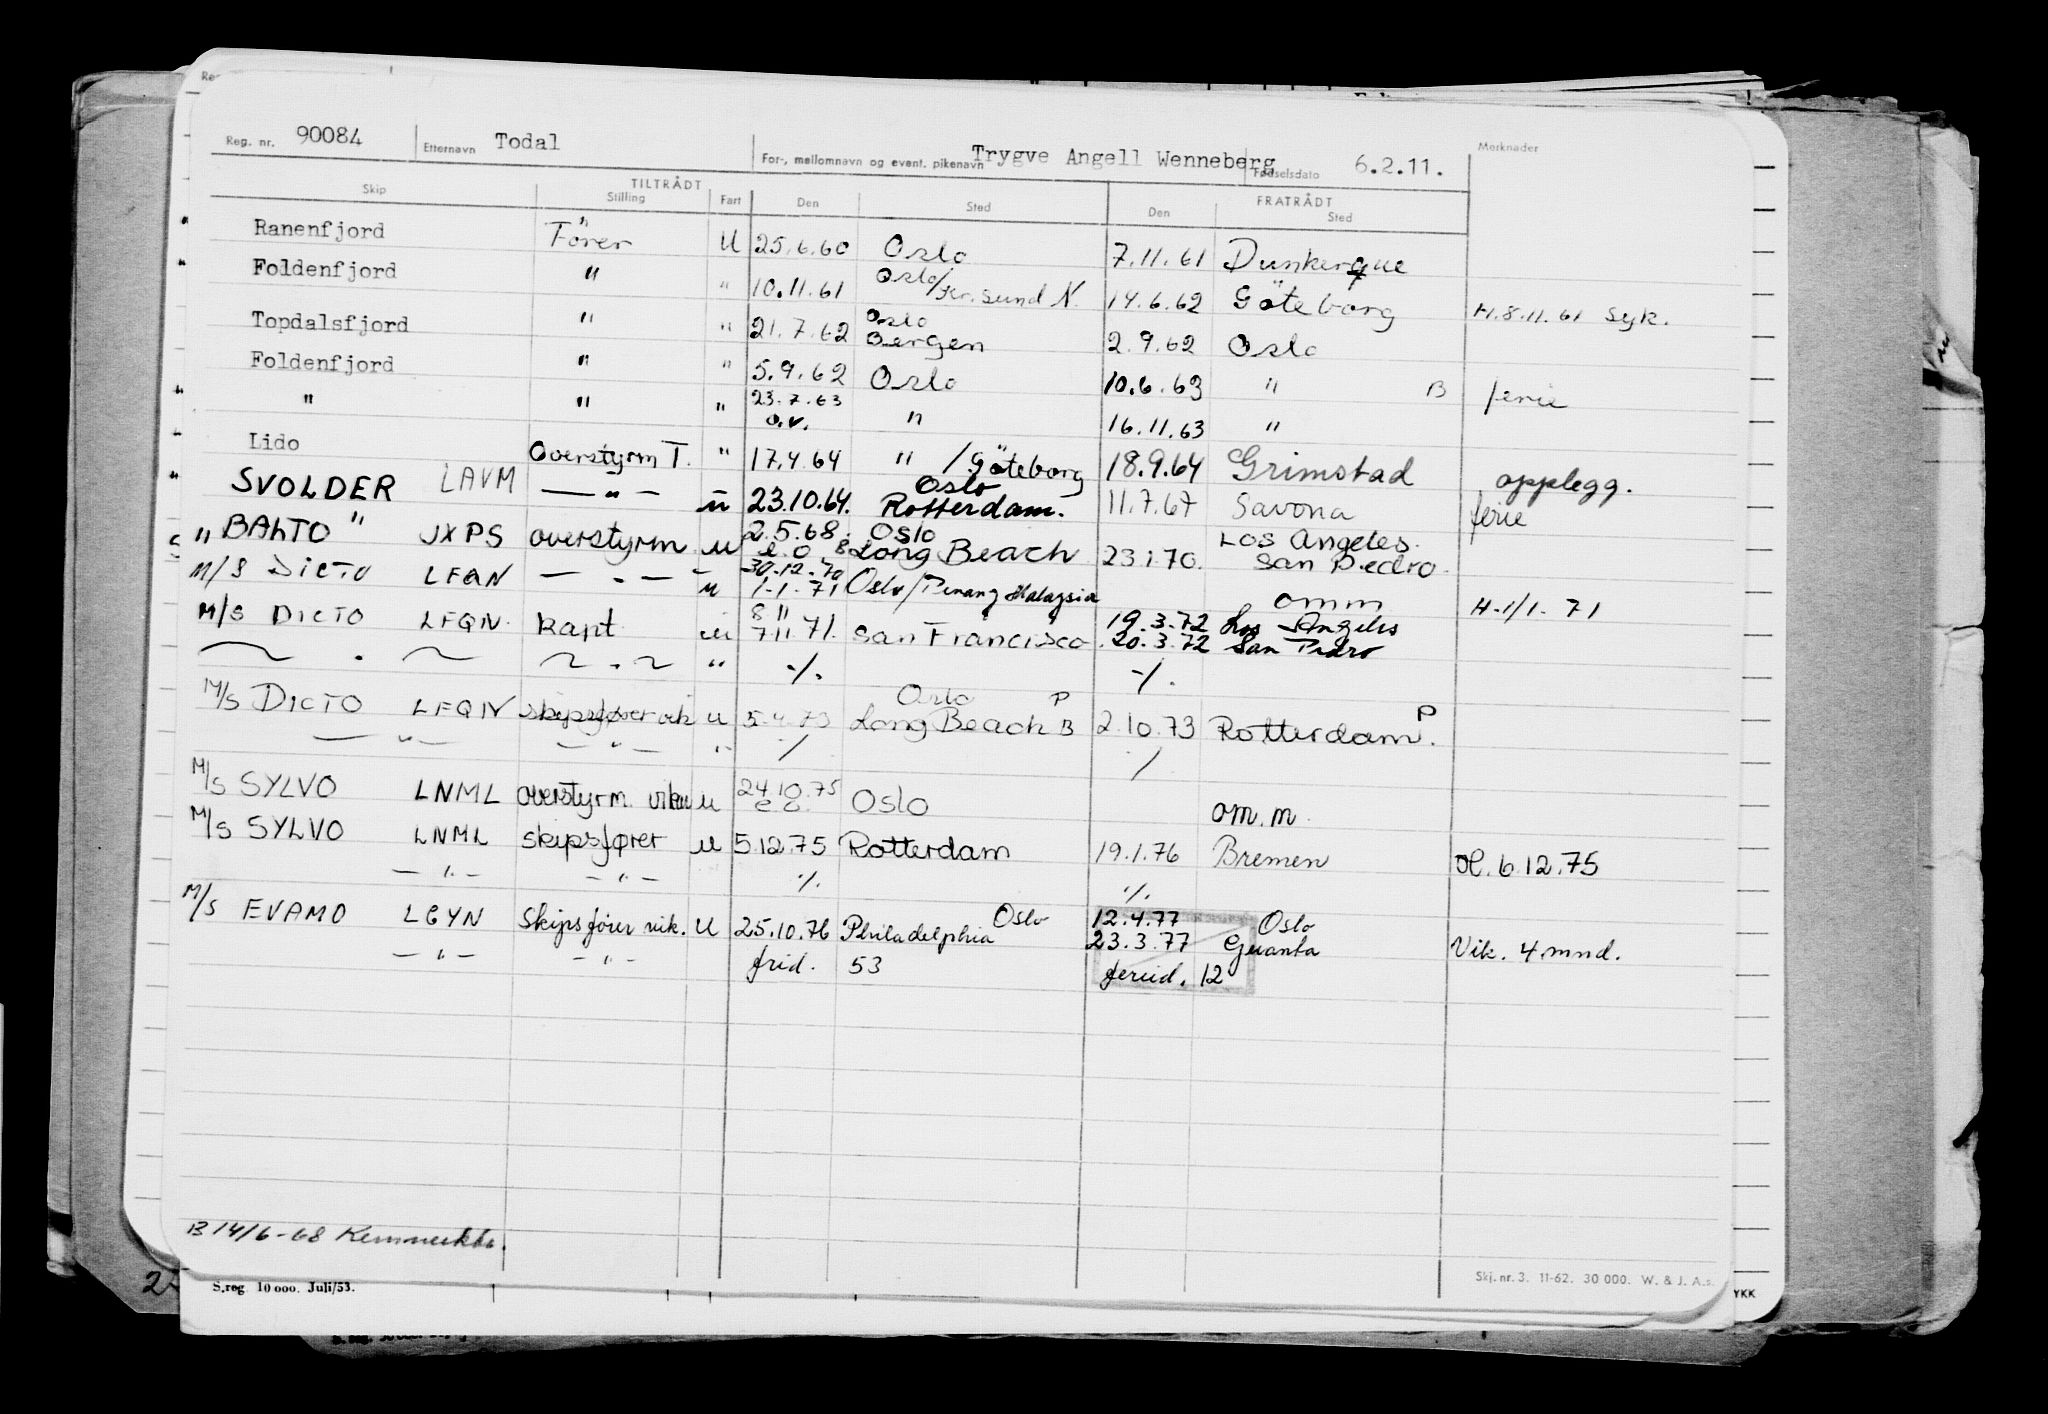 Reg. nr. 90084 Etternavn Todal For-, mellomnavn og event. pikenavn Trygve Angell Wenneberg Fødselsdato 6.2.11. Merknader
TILTRÅDT FRATRÅDT
Skip Stilling Fart Den Sted Den Sted
Ranenfjord Förer U 25.6.60 Oslo 7.11.61 Dunkerque
Foldenfjord " " 10.11.61 Oslo/Kr.sund N. 14.6.62 Göteborg H.8.11.61 Syk.
Topdalsfjord " " 21.7.62 Oslo Bergen 2.9.62 Oslo
Foldenfjord " " 5.9.62 Oslo 10.6.63 " B ferie
" " " 23.7.63 o.v. " 16.11.63 "
Lido Overstyrm T. " 17.4.64 " / Göteborg 18.9.64 Grimstad opplegg.
SVOLDER LAVM — " — u 23.10.64. Oslo Rotterdam. 11.7.67 Savona ferie
" BALTO " JXPS overstyrm u 2.5.68. Oslo Long Beach 23.1.70. Los Angeles. San Pedro.
M/S DICTO LFQN — . — u 30.12.70 1.1.71 Oslo/Penang Malaysia omm H.1/1.71
M/S DICTO LFQN. kapt u 8 11 7.11.71. San Francisco 19.3.72 Los Angeles
20.3.72 San Pedro
" ./. ./.
M/S DICTO LFQN skipsfører vik u 5.4.73 Oslo P Long Beach B 2.10.73 Rotterdam. P
— " — — " — " ./. ./.
M/S SYLVO LNML overstyrm. vikar u 24.10.75 e.o. Oslo om.m.
M/S SYLVO LNML skipsfører u 5.12.75 Rotterdam 19.1.76 Bremen H. 6.12.75
— " — — " — ./. ./.
M/S EVAMO LGYN Skipsfører vik. U 25.10.76 Philadelphia Oslo 12.4.77 Oslo
23.3.77 Guanta Vik. 4 mnd.
— " — — " — frid. 53 feried. 12
B 14/6-68
S.reg. 10 000. Juli/53.
Skj. nr. 3. 11-62. 30 000. W. & J. A.s.
YKK